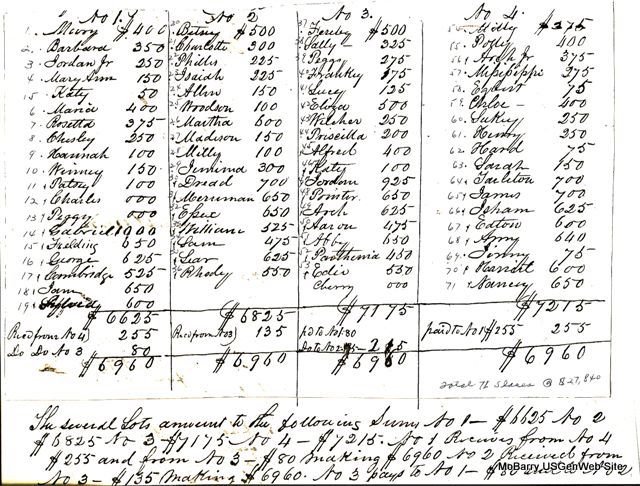 No 1.
1. Moory $400
2. Barbara 350
3. Jordan Jr 250
4. Mary Ann 150
5 Katy 50
6 Maria 400
7. Rosetta 375
8 Chesley 250
9. Hannah 100
10. Winney 150
11 Patsey 100
12 Charles 000
13 Peggy 000
14 Gabriel 1000
15 Fielding 650
16 George 625
17 Cambridge 525
18 Sam 650
19 600
$6625
Recd from No 4) 255
Do Do No 3 80
$6960
No 2
Betsey $500
Charlotte 300
Phillis 225
Isaiah 225
Allen 150
Woodson 100
Martha 600
Madison 150
Milly 100
Jemima 300
Dread 700
Merriman 650
Epee 650
William 525
Sam 475
625
Rhody 550
$6825
Recd from No 3) 135
$6960
No 3.
Fereby $500
Sally - 325
Peggy 275
Frankey 175
Lucy 125
Eliza 500
Wilcher 250
Priscilla 200
Alfred 400
Katy 100
Jordan 925
Printer 650
Arch 625
Aaron 475
Abby 650
Parthenia 450
Edie 550
Cherry 000
$7175
pd to No 1 80
Do to No 2
$6960
No 4.
Milly $375
55. Polly 400
56 Arch Jr 375
57. Mipisippi 275
58. Egbert 75
59. Chloe - 400
60. Sukey 250
61. Henry 250
62. Hard 75
63. Sarah 150
64 Tarlton 700
65 James 700
66 Isham 625
67 Eaton 600
68 Amy 640
69. Jinny 75
70 Harriet 600
71 Nancy 650
$7215
paid to No 1 $255 255
$6960
total 71 Slaves @ $27,840
The several Lots amount to the following Sums No 1 - $6625 No 2
$6825 No 3 - $7175 No 4 - $7215. No 1 Receives from No 4
$255 and from No 3 - $80 making $6960 No 2 Received from
No 3 - $135 making $6960. No 3 pays to No 1 - $80 and to No 2
MoBarry USGenWeb Site